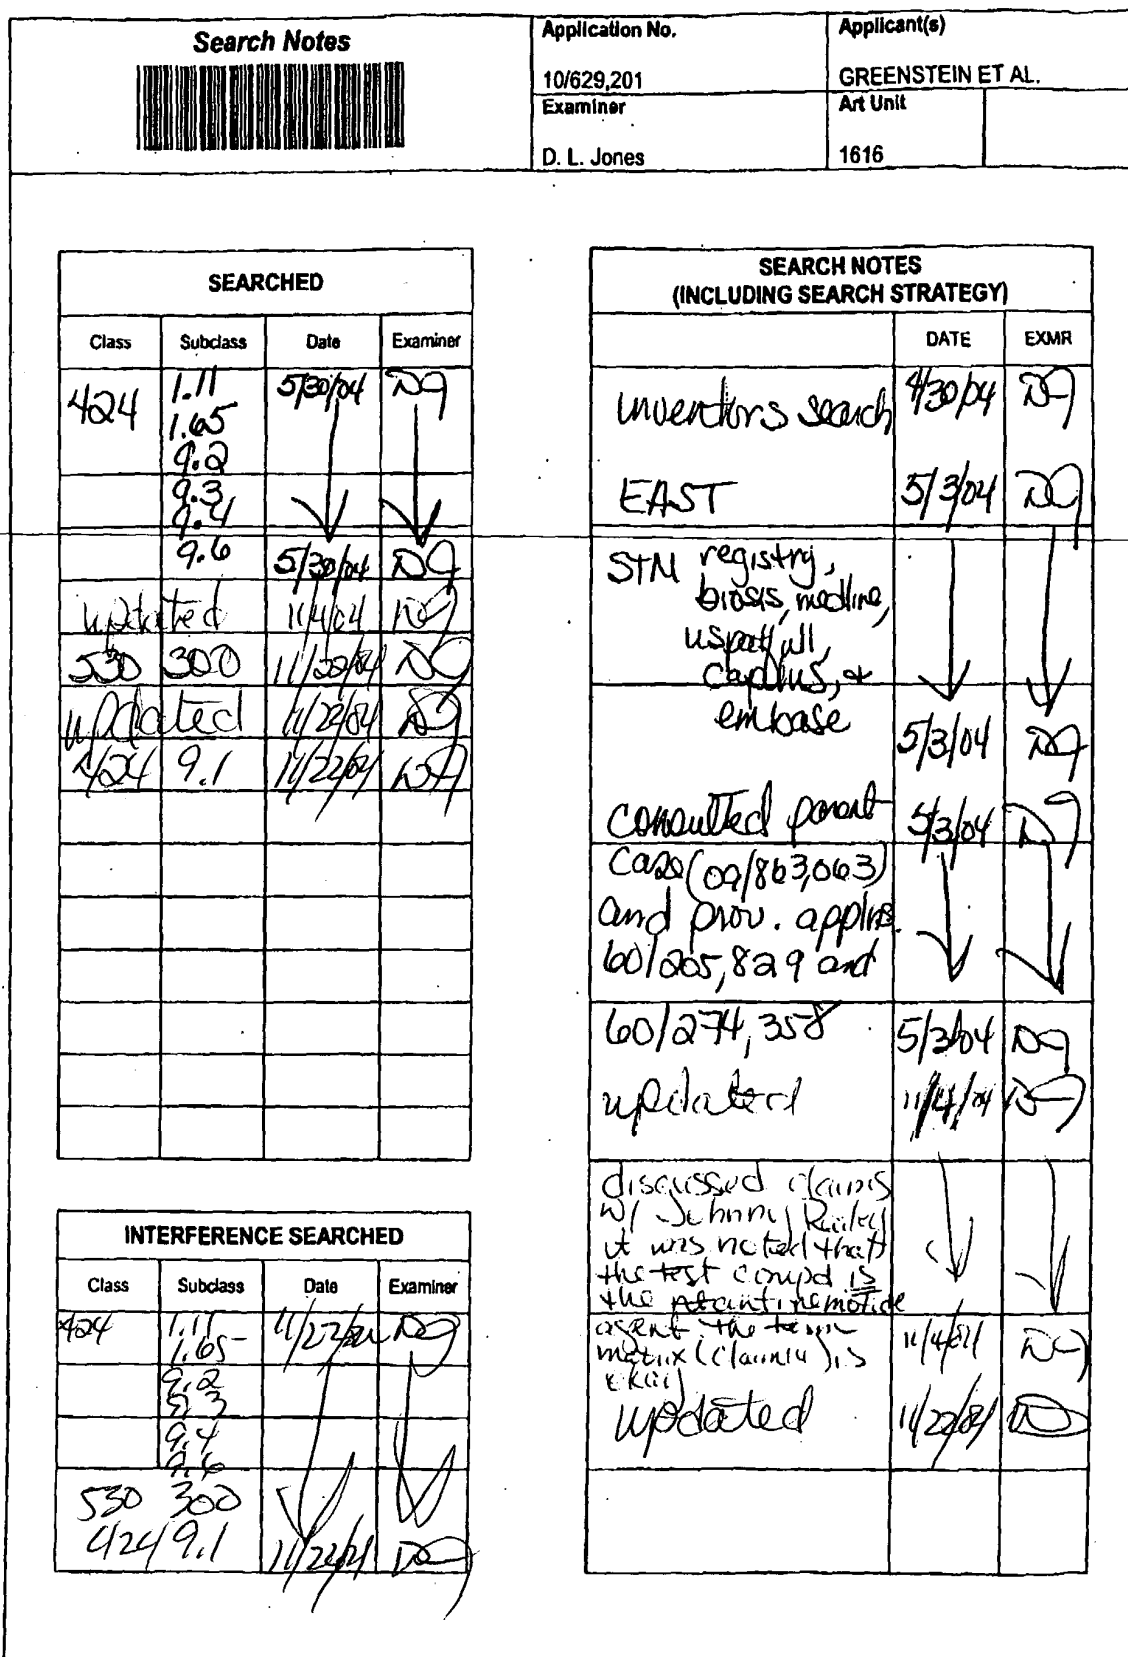 Search Notes
Application No.
10/629,201
Applicant(s)
GREENSTEIN ET AL.
Examiner
D. L. Jones
Art Unit
1616
SEARCHED
Class Subclass Date Examiner
424 1.11 5/30/04 DJ
1.65
9.2
9.3
9.4
9.6 5/30/04 DJ
updated 11/4/04 DJ
530 300 11/22/04 DJ
updated 11/22/04 DJ
424 9.1 11/22/04 DJ
INTERFERENCE SEARCHED
Class Subclass Date Examiner
424 1.11 11/22/04 DJ
1.65
9.2
9.3
9.4
9.6
530 300
424 9.1 11/22/04 DJ
SEARCH NOTES
(INCLUDING SEARCH STRATEGY)
DATE EXMR
inventors search 4/30/04 DJ
EAST 5/3/04 DJ
STN registry,
biosis, medline,
uspatfull,
caplus, &
embase
5/3/04 DJ
consulted parent 5/3/04 DJ
case (09/863,063)
and prov. applns.
60/205,829 and
60/274,358 5/3/04 DJ
updated 11/4/04 DJ
discussed claims
w/ Johnny
it was noted that
the test compd is
the
agent. the term
matrix (claim), is 11/4/04 DJ
okay
updated 11/22/04 DJ